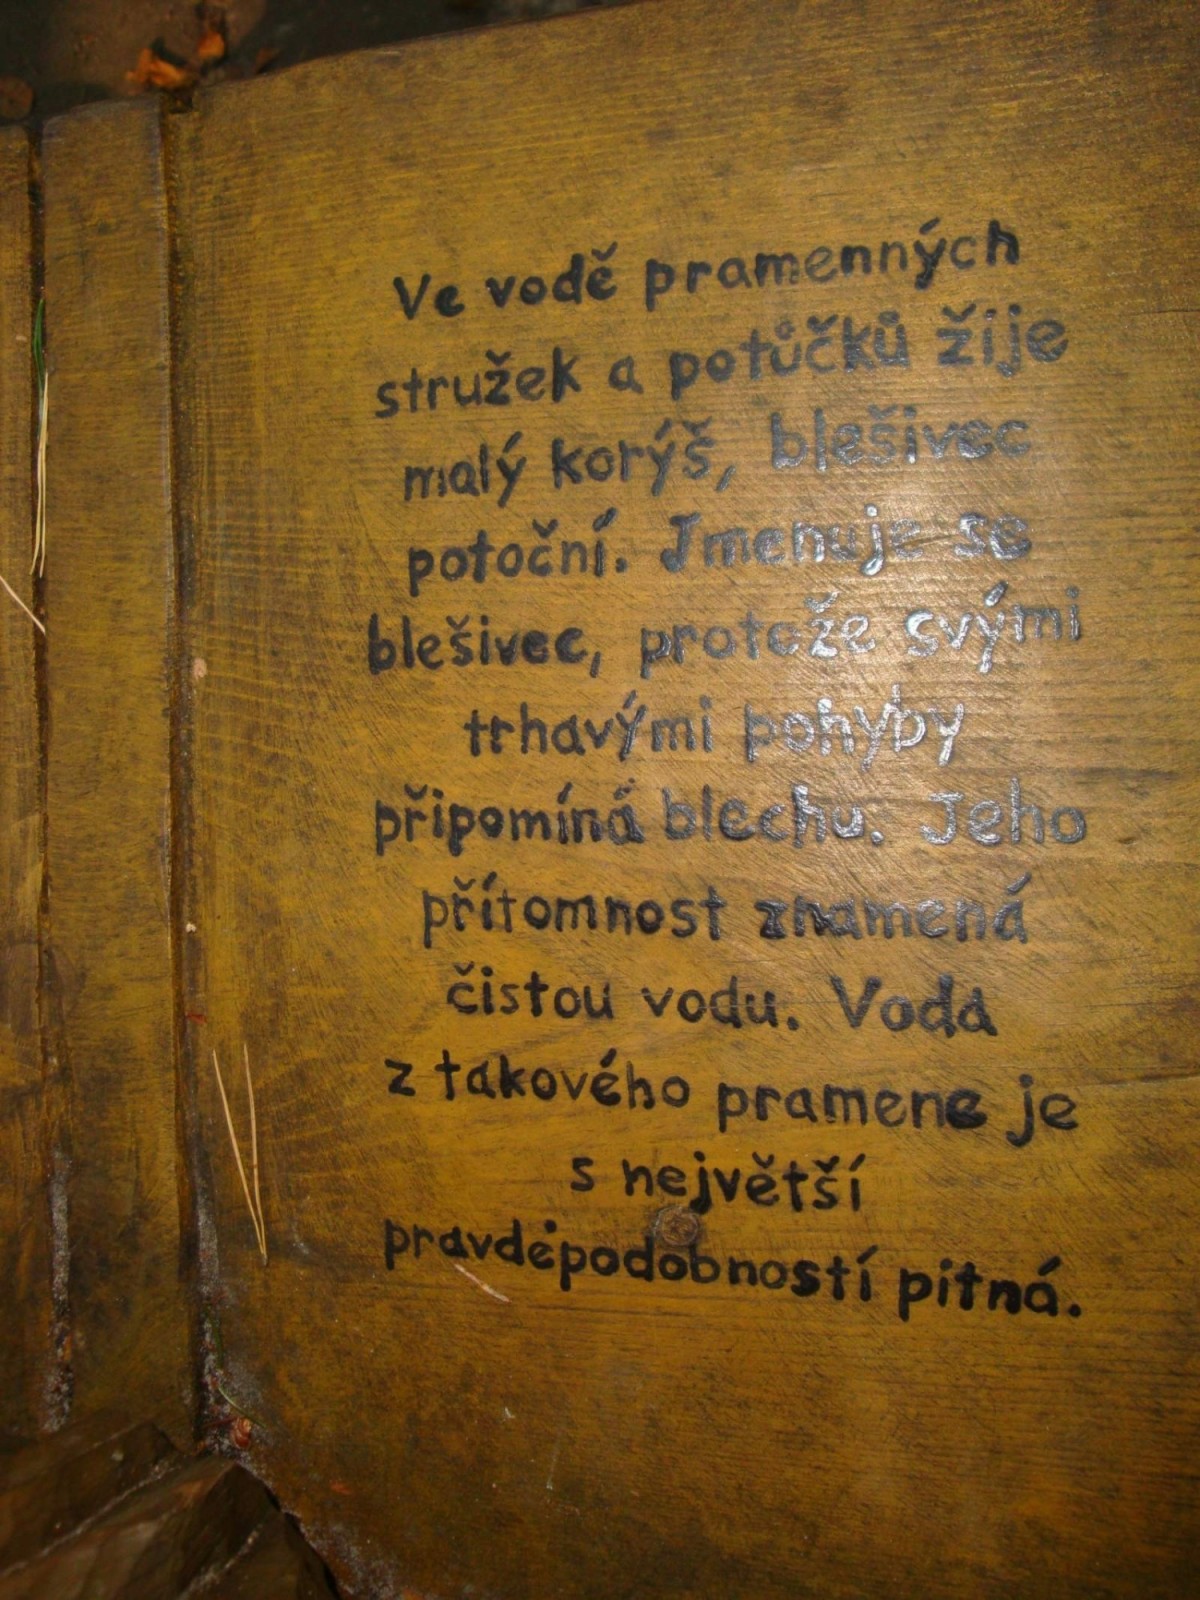 Ve vodě pramenných
stružek a potůčků žije
malý korýš, blešivec
potoční. Jmenuje se
blešivec, protože svými
trhavými pohyby
připomíná blechu. Jeho
přítomnost znamená
čistou vodu. Voda
z takového pramene je
s největší
pravděpodobností pitná.